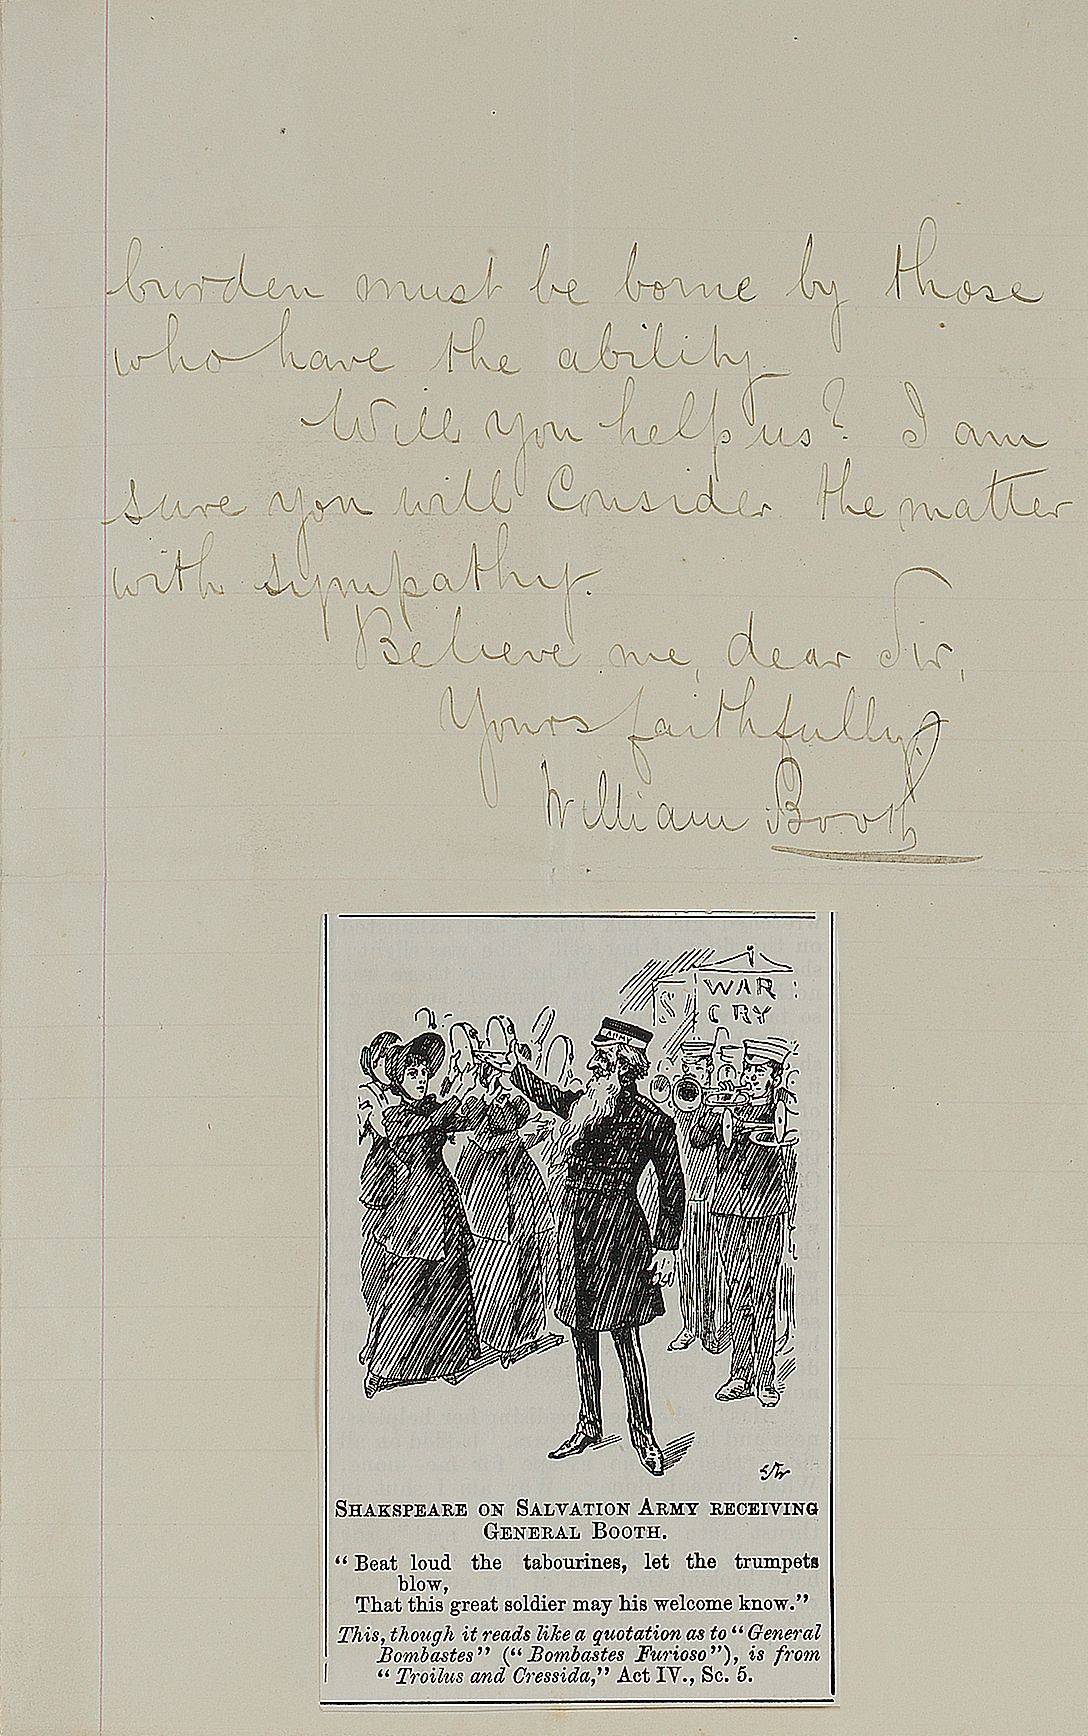 burden must be borne by those
who have the ability.
Will you help us? I am
sure you will Consider the matter
with sympathy.
Believe me, dear Sir,
Yours faithfully,
William Booth
WAR
CRY
ARMY
SHAKSPEARE ON SALVATION ARMY RECEIVING
GENERAL BOOTH.
"Beat loud the tabourines, let the trumpets
blow,
That this great soldier may his welcome know."
This, though it reads like a quotation as to "General
Bombastes" ("Bombastes Furioso"), is from
"Troilus and Cressida," Act IV., Sc. 5.